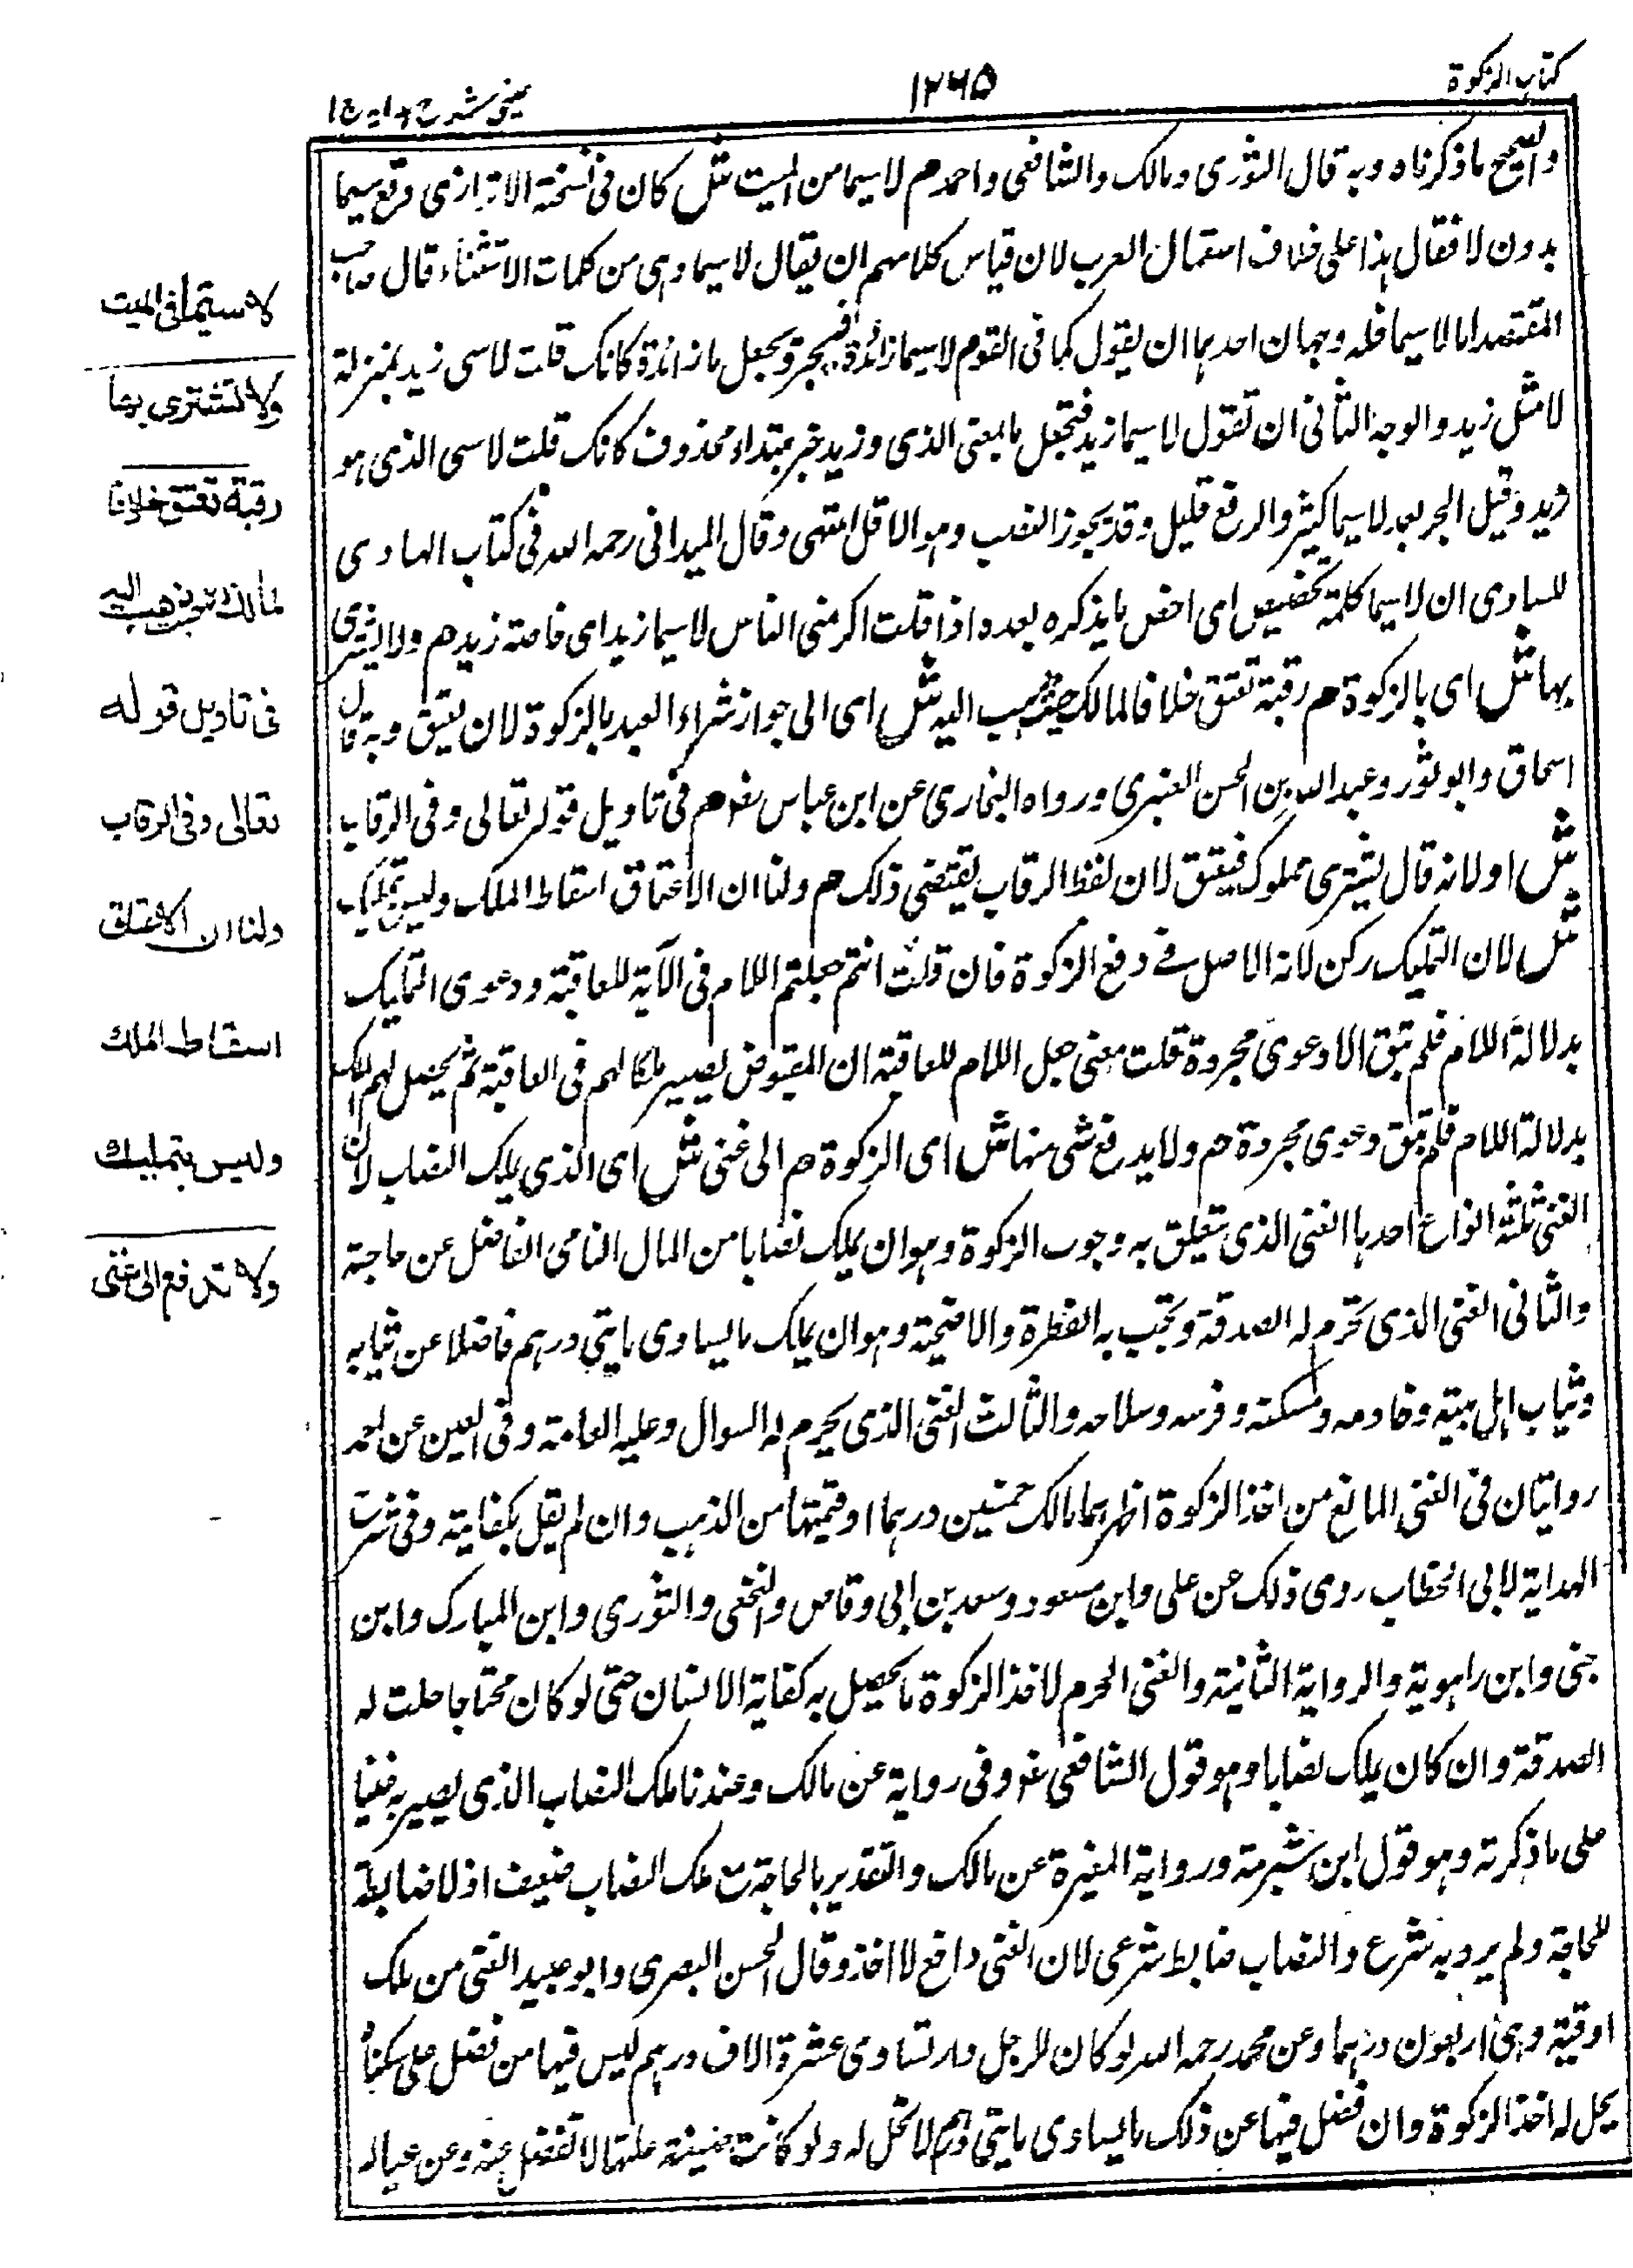 كتاب الزكوة
١٢٦٥
عينى شرح هدايه ج ١
والصحيح ما ذكرناه وبه قال الثورى ومالك والشافعى واحمد م لا سيما من الميت ش كان فى نسخة الاترازى وقع سيما
بدون لا فقال هذا على خلاف استعمال العرب لان قياس كلامهم ان يقال لا سيما وهى من كلمات الاستثناء قال صاحب
المقتصد اما لا سيما فله وجهان احدهما ان يقول كما فى القوم لا سيما زائدة فيجر ويجعل ما زائدة كانك قلت لا سى زيد بمنزلة
لا مثل زيد والوجه الثانى ان تقول لا سيما زيد فتجعل ما بمعنى الذى وزيد خبر مبتداء محذوف كانك قلت لا سى الذى هو
زيد وقيل الجر بعد لا سيما كثير والرفع قليل وقد يجوز النصب وهو الاقل انتهى وقال الميدانى رحمه الله فى كتاب الهادى
للساوى ان لا سيما كلمة تخصيص اى اخص ما يذكره بعده واذا قلت اكرمنى الناس لا سيما زيد اى خاصة زيد م ولا يشترى
بها ش اى بالزكوة م رقبة تعتق خلافا لمالك حيث ذهب اليه ش اى الى جواز شراء العبد بالزكوة لان يعتق وبه قال
اسحاق وابو ثور وعبد الله بن الحسن العنبرى ورواه البخارى عن ابن عباس رض م فى تاويل قوله تعالى وفى الرقاب
ش اولا نه قال يشترى مملوك فيعتق لان لفظ الرقاب يقتضى ذلك م ولنا ان الاعتاق اسقاط الملك وليس بتمليك
ش لان التمليك ركن لانه الاصل فى دفع الزكوة فان قلت انتم جعلتم اللام فى الآية للعاقبة ودعوى التمليك
بدلالة اللام فلم تبق الا دعوى مجردة قلت معنى جعل اللام للعاقبة ان المقبوض يصير ملكا لهم فى العاقبة ثم يحصل لهم الملك
بدلالة اللام فلم تبق دعوى مجردة م ولا يدفع شى منها ش اى الزكوة م الى غنى ش اى الذى يملك النصاب لان
الغنى ثلثة انواع احدها الغنى الذى يتعلق به وجوب الزكوة وهو ان يملك نصابا من المال النامى الفاضل عن حاجة
والثانى الغنى الذى يحرم له الصدقة وتجب به الفطرة والاضحية وهو ان يملك ما يساوى مايتى درهم فاضلا عن ثيابه
وثياب اهل بيته وخادمه ومسكنه وفرسه وسلاحه والثالث الغنى الذى يحرم له السوال وعليه العامة وفى العين عن احمد
روايتان فى الغنى المانع من اخذ الزكوة اظهرهما مالك خمسين درهما او قيمتها من الذهب وان لم يقل بكفايته وفى شرح
الهداية لابى الخطاب روى ذلك عن على وابن مسعود وسعد بن ابى وقاص والنخعى والثورى وابن المبارك وابن
جنى وابن راهوية والرواية الثانية والغنى المحرم لاخذ الزكوة ما يحصل به كفاية الانسان حتى لو كان محتاجا حلت له
الصدقة وان كان يملك نصابا وهو قول الشافعى رض وفى رواية عن مالك وعندنا ملك النصاب الذى يصير به غنيا
على ما ذكرته وهو قول ابن شبرمة ورواية المغيرة عن مالك والتقدير بالحاجة مع ملك النصاب ضعيف اذ لا ضابطة
للحاجة ولم يرد به شرع والنصاب ضابط شرعى لان الغنى دافع لا اخذ وقال الحسن البصرى وابو عبيد الغنى من ملك
اوقية وهى اربعون درهما وعن محمد رحمه الله لو كان للرجل دار تساوى عشرة الاف درهم ليس فيها من فضل على سكناه
يحل له اخذ الزكوة وان فضل فيها عن ذلك ما يساوى مايتى درهم لا تحل له ولو كانت ضيعة غلتها لا تفضل عنه وعن عياله
لا سيما فى الميت
ولا تشترى بها
رقبة تعتق خلافا
لمالك حيث ذهب اليه
فى تاويل قوله
تعالى وفى الرقاب
ولنا ان الاعتاق
اسقاط الملك
وليس بتمليك
ولا تدفع الى غنى